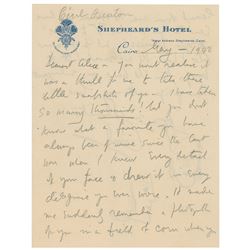 Cecil Beaton
SHEPHEARD'S HOTEL
Cairo May – 1942
Dearest Alice – You must realise it
was a thrill for me to take those
little snapshots of you – I have taken
so many thousands! but you don't
know what a favourite you have
always been of mine since the last
war when I knew every detail
of your face & dress & in every
you ever wore. It made
me suddenly remember a photograph
of you in a field of corn when you